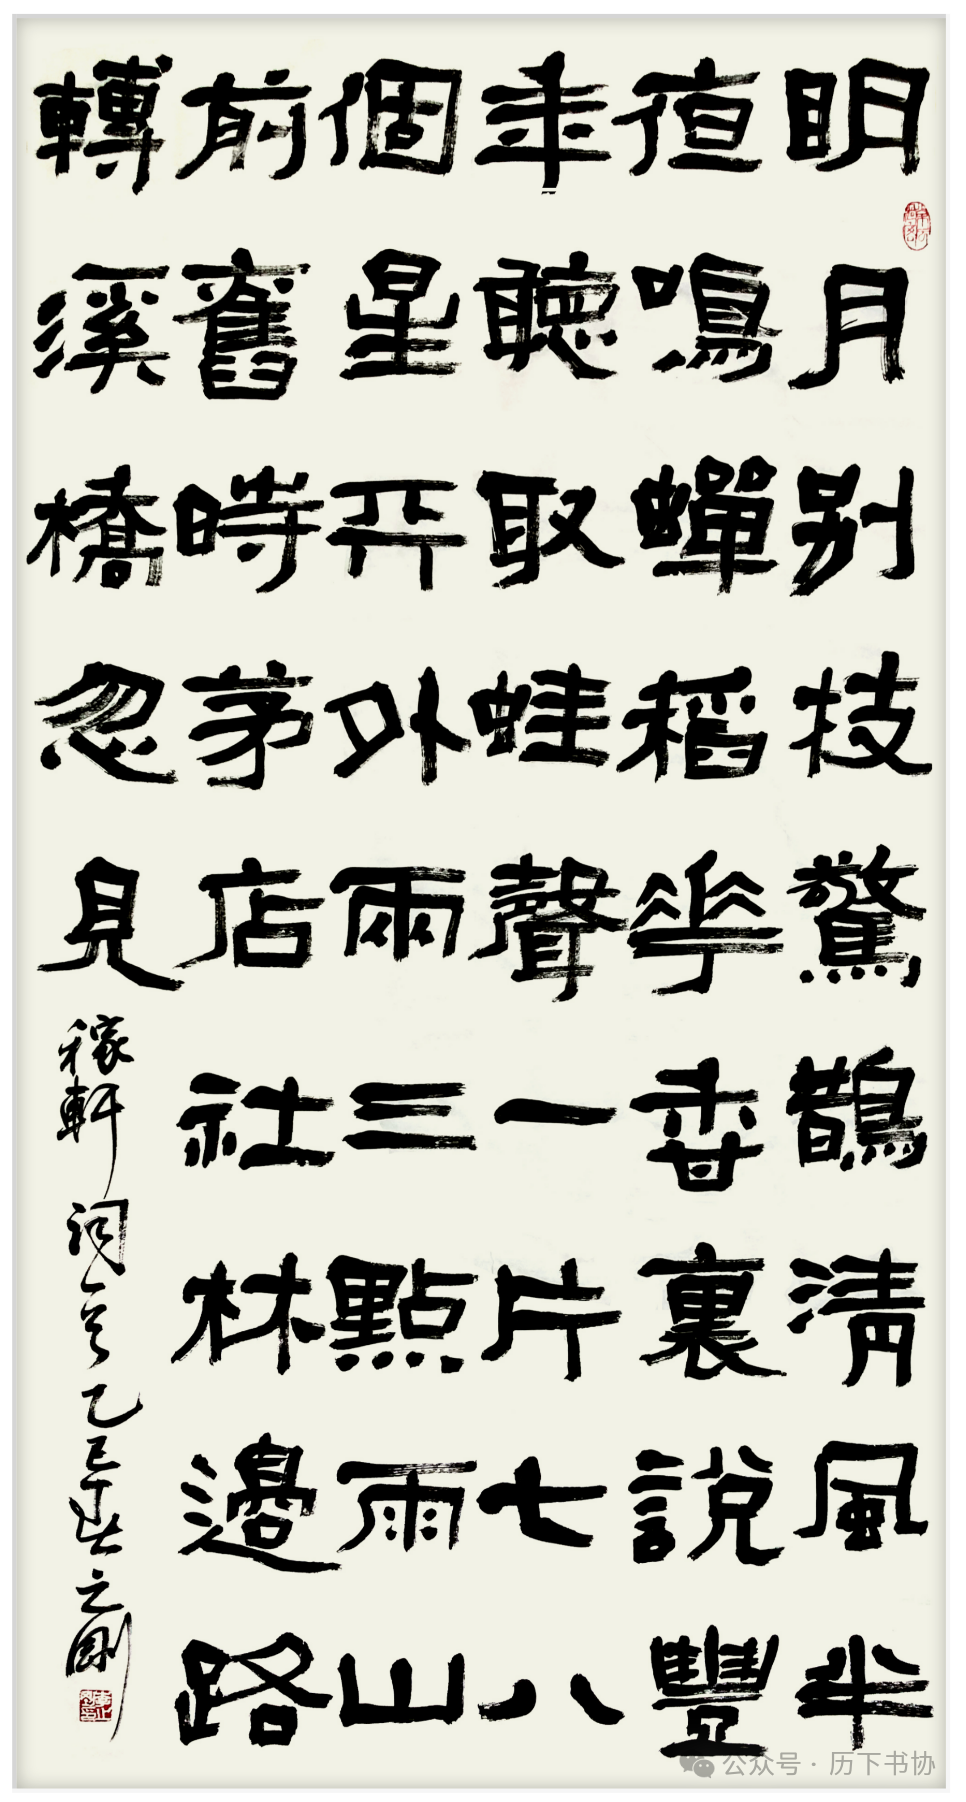 明月别枝驚鵲清風半
亱鳴蟬稻華香裏說豐
年聽取蛙聲一片七八
個星天外兩三點雨山
前舊時茅店社林邊路
轉溪橋忽見
稼軒詞 乙巳春之剛
公众号 · 历下书协